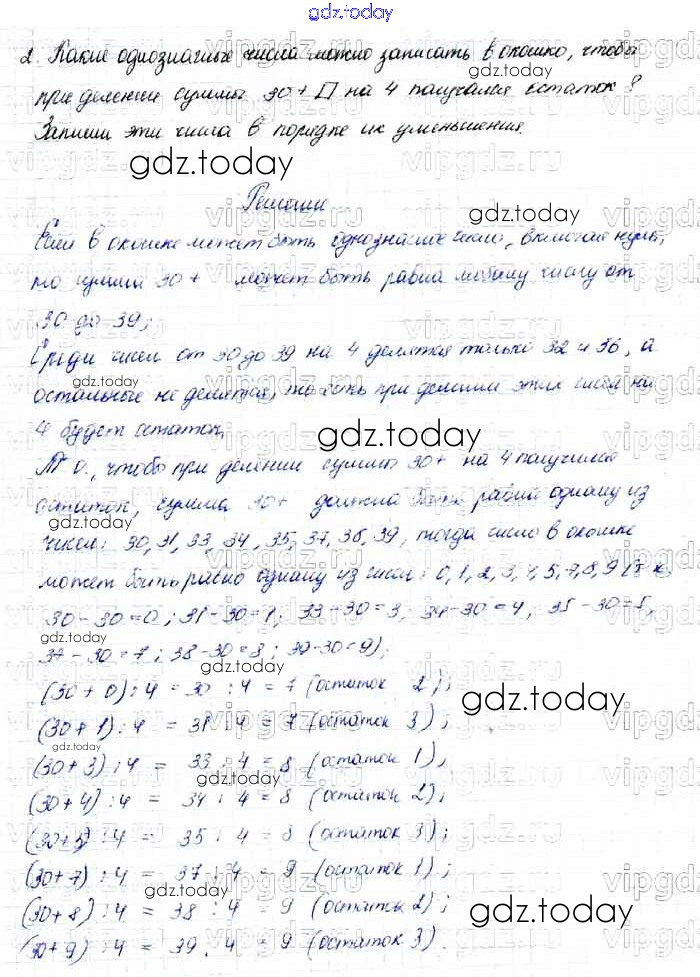 gdz.today
2. Какие однозначные числа можно записать в окошко, чтобы
при делении суммы 30 + □ на 4 получался остаток?
Запиши эти числа в порядке их уменьшения.
gdz.today
Решение
gdz.today
Если в окошке может быть однозначное число, включая нуль,
то сумма 30 + может быть равна любому числу от
30 до 39;
Среди чисел от 30 до 39 на 4 делятся только 32 и 36, а
gdz.today
остальные не делятся, то есть при делении этих чисел на
4 будет остаток,
gdz.today
Т. о., чтобы при делении суммы 30+ на 4 получился
остаток, сумма 30+ должна быть равна одному из
gdz.today
чисел: 30, 31, 33, 34, 35, 37, 38, 39, тогда число в окошке
может быть равно одному из чисел: 0, 1, 2, 3, 4, 5, 7, 8, 9 (т. к.
30 - 30 = 0; 31 - 30 = 1; 33 - 30 = 3; 34 - 30 = 4, 35 - 30 = 5,
gdz.today
37 - 30 = 7; 38 - 30 = 8; 39 - 30 = 9);
(30 + 0) : 4 = 30 : 4 = 7 (остаток 2);
gdz.today
(30 + 1) : 4 = 31 : 4 = 7 (остаток 3);
gdz.today
(30 + 3) : 4 = 33 : 4 = 8 (остаток 1),
gdz.today
(30 + 4) : 4 = 34 : 4 = 8 (остаток 2);
(30 + 5) : 4 = 35 : 4 = 8 (остаток 3);
(30 + 7) : 4 = 37 : 4 = 9 (остаток 1);
gdz.today
(30 + 8) : 4 = 38 : 4 = 9 (остаток 2);
gdz.today
(30 + 9) : 4 = 39 : 4 = 9 (остаток 3).